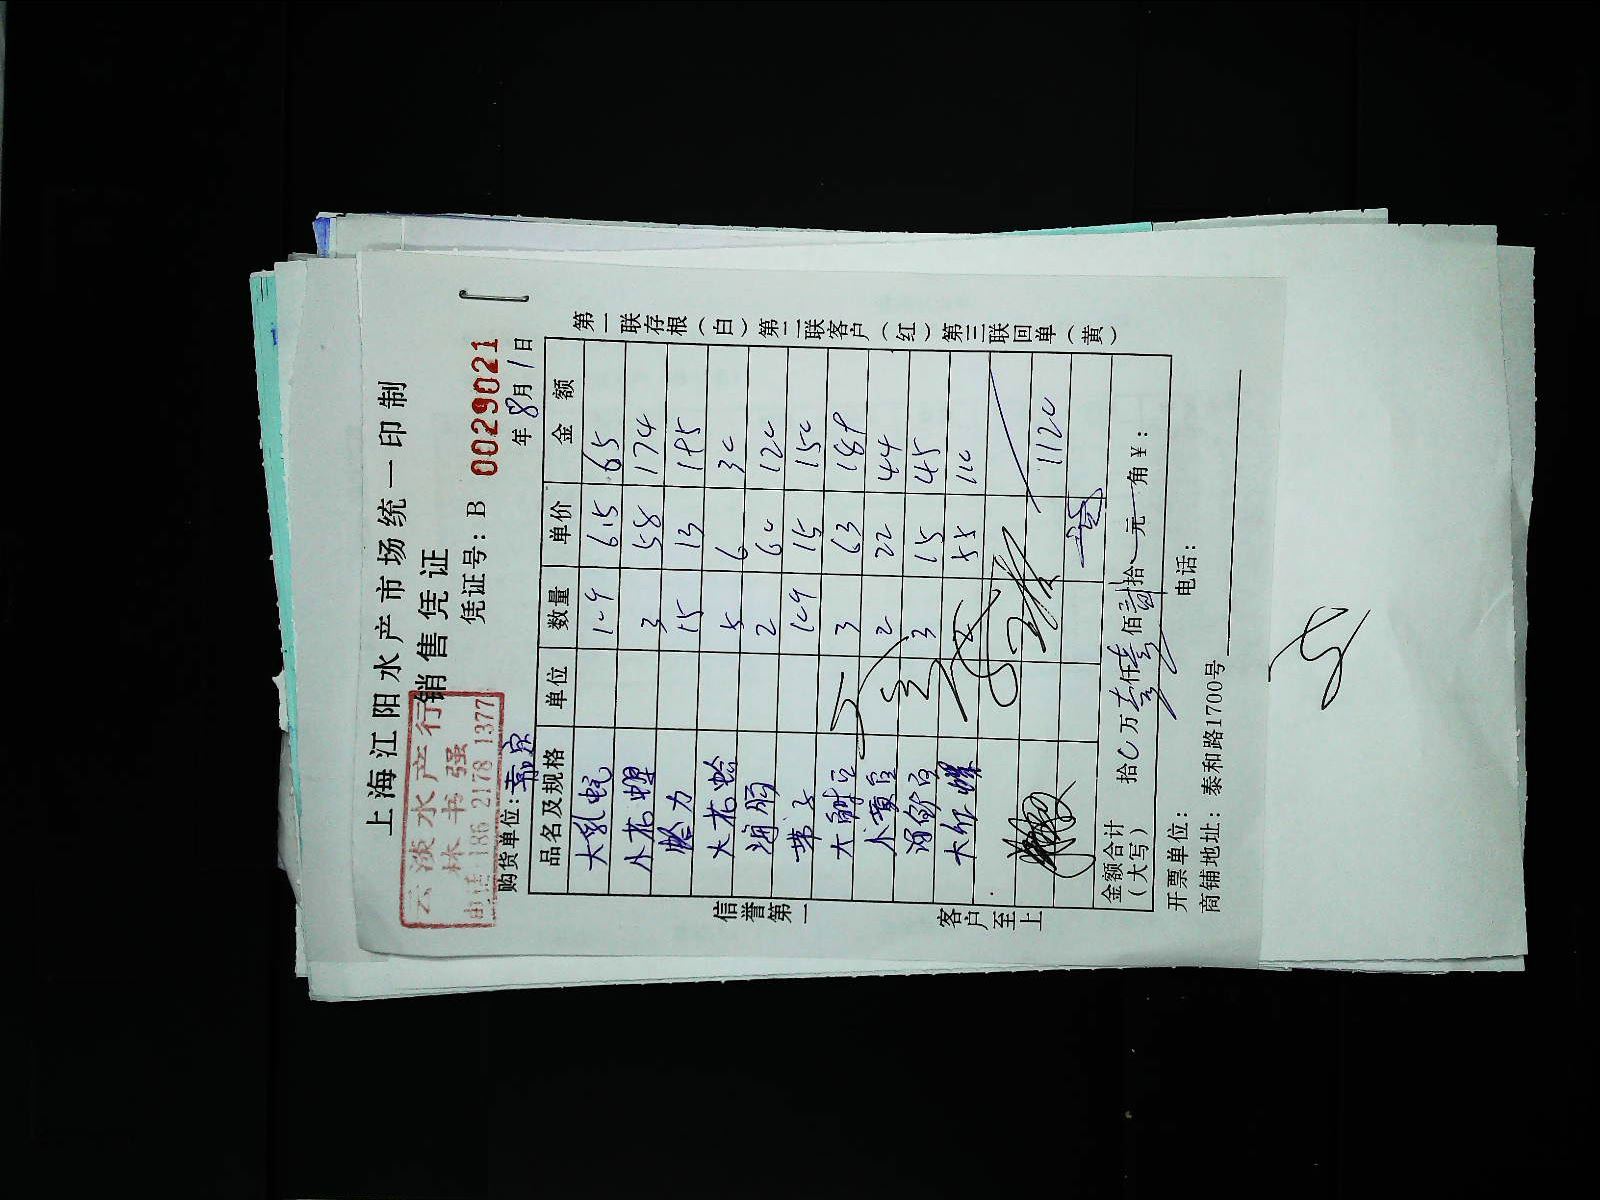 上海江阳水产市场统一印制
销售凭证
云淡水产行
林书强
电话 186 2178 1377
凭证号: B 0029021
购货单位:
年 8月 1日
品名及规格 单位 数量 单价 金额
大乳蚝 10只 6.5 65
小花螺 3 58 174
蛤力 15 13 195
大花蛤 5 6 30
2 60 120
带子 10只 15 150
3 63 189
2 22 44
3 15 45
大红螺 2 55 110
1120
金额合计
(大写)
拾 0 万 壹 仟 壹 佰 贰 拾 元 角 ¥:
开票单位: 电话:
商铺地址: 泰和路1700号
信誉第一
客户至上
第一联存根(白)第二联客户(红)第三联回单(黄)